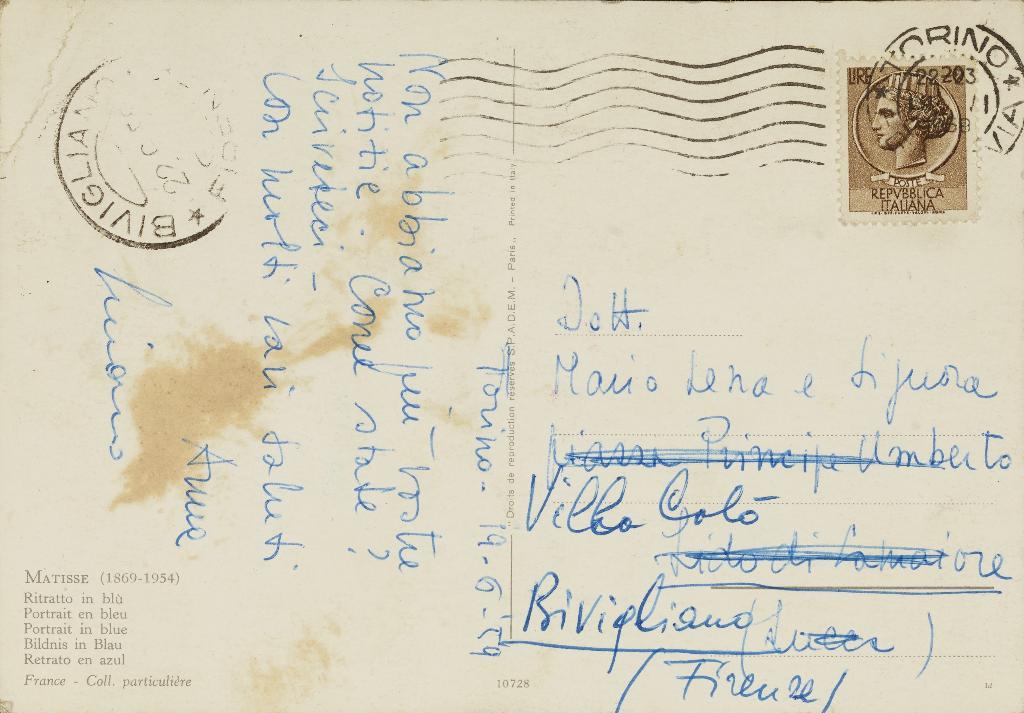 Torino - 19-6-59
Non abbiamo più vostre
notizie. Come state?
Scriveteci -
Con molti cari saluti
Anna
Dott.
Mario Lena e Signora
Piazza Principe Umberto
Villa Galò
Lido di Camaiore
Bivigliano (Lucca)
(Firenze)
TORINO
LIRE
POSTE
REPVBBLICA
ITALIANA
BIVIGLIANO
MATISSE (1869-1954)
Ritratto in blù
Portrait en bleu
Portrait in blue
Bildnis in Blau
Retrato en azul
France - Coll. particulière
10728
Droits de reproduction réservés S.P.A.D.E.M. - Paris., Printed in Italy